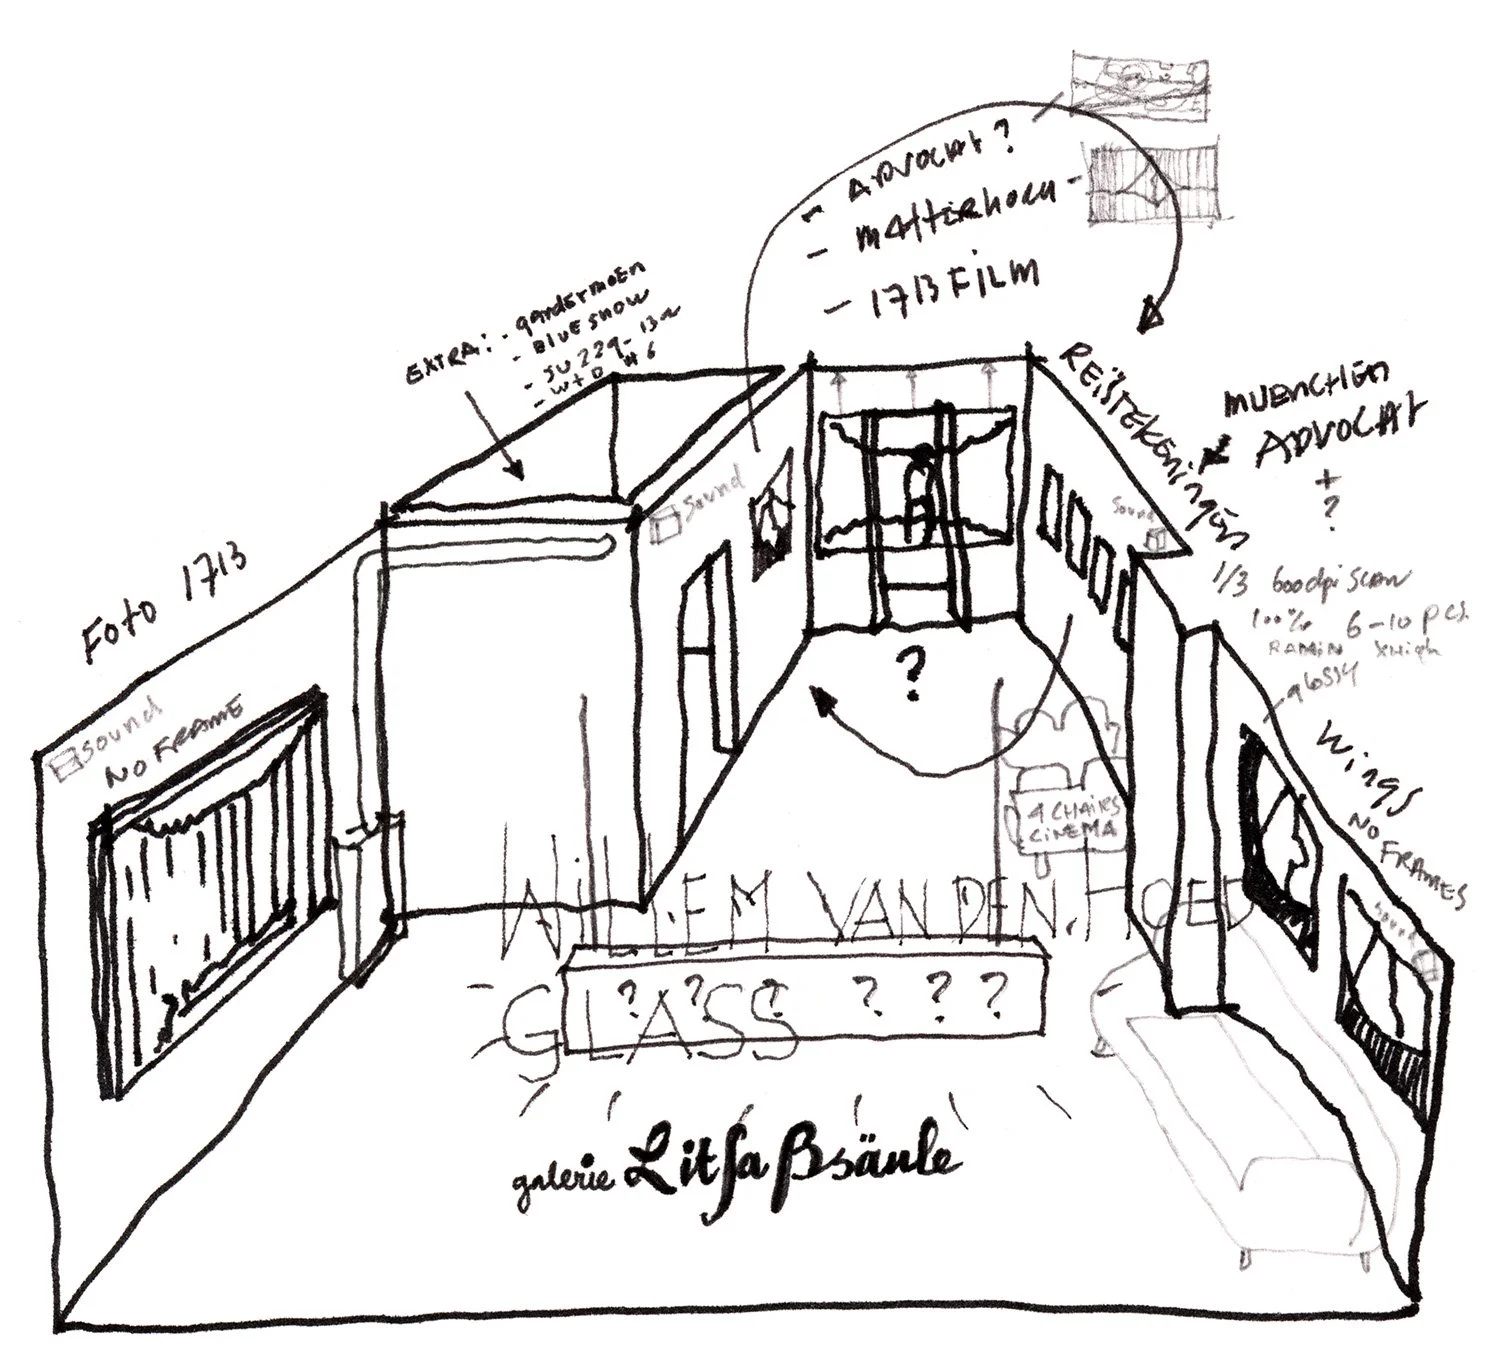 - ADVOCAT?
- MATTERHORN -
- 1713 FILM
EXTRA: - gardermoen
- BLUE SNOW
- JU 229-
- WTD #6
REISTEKENINGEN
MUENCHEN
ADVOCAT
+
?
Foto 1713
sound
NO FRAME
sound
sound
1/3 600dpi SCAN
100% 6-10 pcs.
RAMIN xhigh
glossy
Wings
NO
FRAMES
sound
?
4 CHAIRS
CINEMA
WILLEM VAN DEN HOED
- GLASS
? ? ? ? ? ?
galerie Litfaßsäule